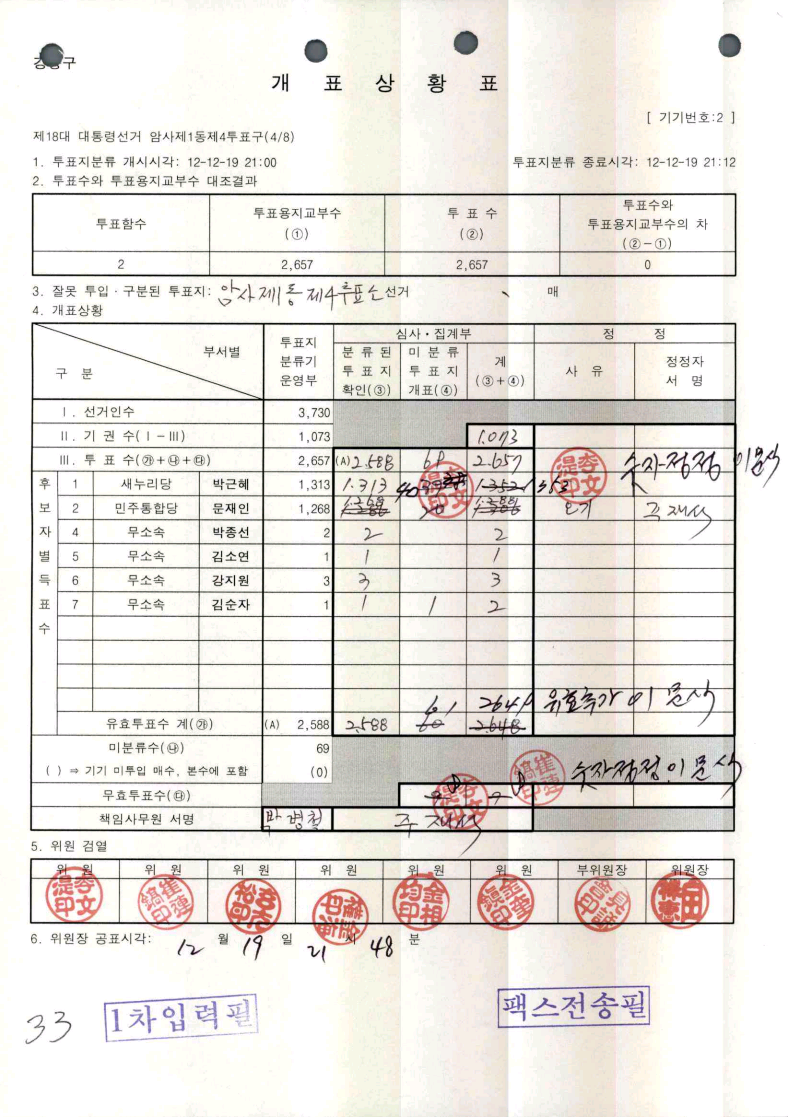 강동구
개 표 상 황 표
[ 기기번호:2 ]
제18대 대통령선거 암사제1동제4투표구(4/8)
1. 투표지분류 개시시각: 12-12-19 21:00 투표지분류 종료시각: 12-12-19 21:12
2. 투표수와 투표용지교부수 대조결과
투표함수 투표용지교부수 (①) 투 표 수 (②) 투표수와 투표용지교부수의 차 (②-①)
2 2,657 2,657 0
3. 잘못 투입·구분된 투표지: 암사제1동제4투표소 선거 매
4. 개표상황
부서별 구 분 투표지 분류기 운영부 심사·집계부 정 정
분 류 된 투 표 지 확인(③) 미 분 류 투 표 지 개표(④) 계 (③+④) 사 유 정정자 서 명
Ⅰ. 선거인수 3,730
Ⅱ. 기 권 수(Ⅰ-Ⅲ) 1,073 1.073
Ⅲ. 투 표 수(㉮+㉯+㉰) 2,657 (A) 2.588 69 2.657 숫자정정 이문식
후보자별득표수
1 새누리당 박근혜 1,313 1.313 40 1.352 1353
2 민주통합당 문재인 1,268 1.268 20 1.288 오기 주재석
4 무소속 박종선 2 2 2
5 무소속 김소연 1 1 1
6 무소속 강지원 3 3 3
7 무소속 김순자 1 1 1 2
61 2649 유효추가 이문식
유효투표수 계(㉮) (A) 2,588 2.588 60 2.648
미분류수(㉯) 69
( ) ⇒ 기기 미투입 매수, 본수에 포함 (0) 숫자정정 이문식
무효투표수(㉰) 8 8
책임사무원 서명 박병철 주재석
5. 위원 검열
위 원 위 원 위 원 위 원 위 원 위 원 부위원장 위원장
6. 위원장 공표시각: 12 월 19 일 21 시 48 분
33 1차입력필 팩스전송필